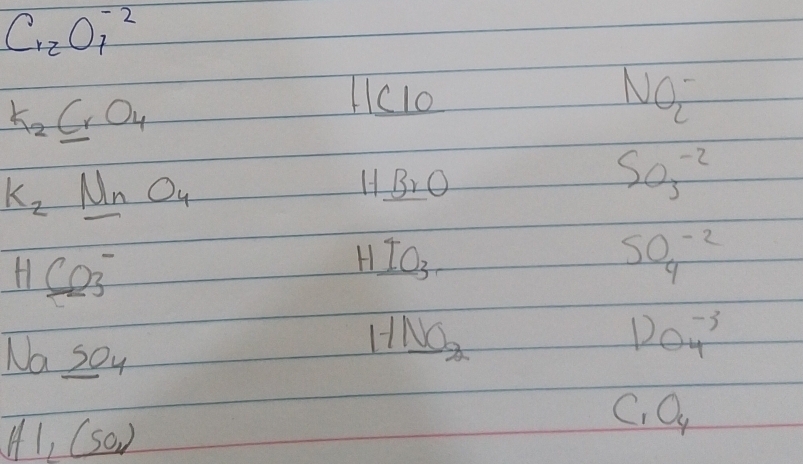 Cr₂O₇⁻²
K₂CrO₄ HClO NO₂⁻
K₂ MnO₄ HBrO SO₃⁻²
HCO₃⁻ HIO₃ SO₄⁻²
Na SO₄ HNO₂ PO₄⁻³
CrO₄